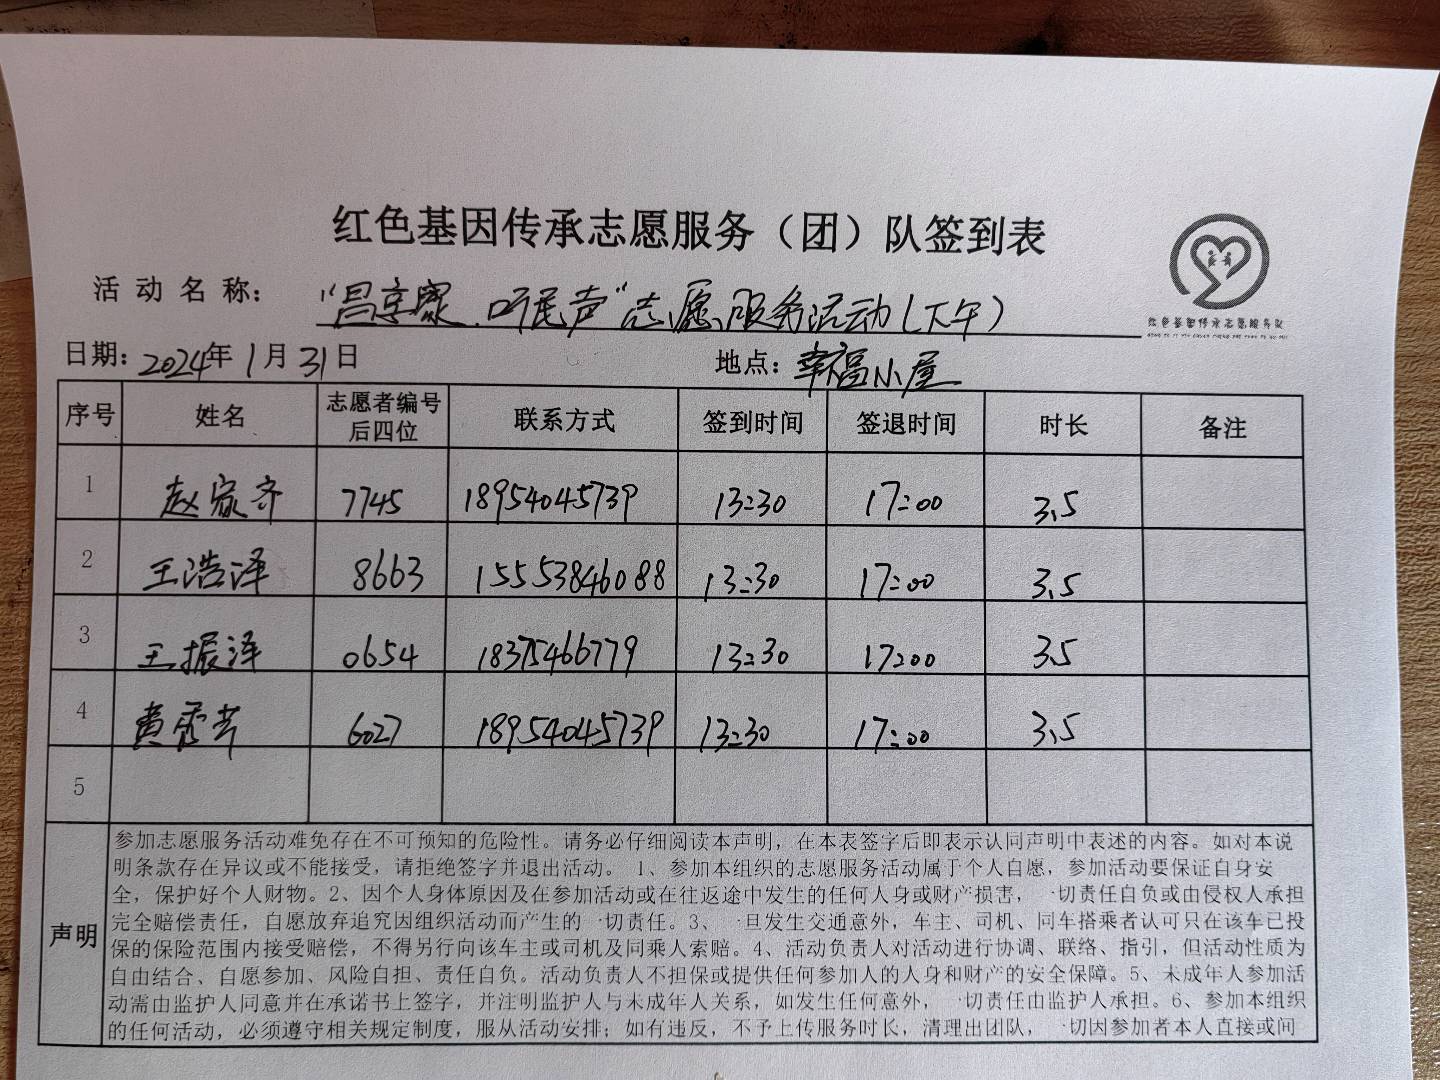 红色基因传承志愿服务（团）队签到表
活动名称："昌享家、听民声"志愿服务活动(下午)
红色基因传承志愿服务队
日期：2024年1月31日 地点：幸福小屋
序号 姓名 志愿者编号后四位 联系方式 签到时间 签退时间 时长 备注
1 赵家齐 7745 18954045739 13:30 17:00 3.5
2 王浩泽 8663 15553846088 13:30 17:00 3.5
3 王振泽 0654 18375466779 13:30 17:00 3.5
4 黄秀芳 6027 18954045739 13:30 17:00 3.5
5
声明
参加志愿服务活动难免存在不可预知的危险性。请务必仔细阅读本声明，在本表签字后即表示认同声明中表述的内容。如对本说
明条款存在异议或不能接受，请拒绝签字并退出活动。 1、参加本组织的志愿服务活动属于个人自愿，参加活动要保证自身安
全，保护好个人财物。2、因个人身体原因及在参加活动或在往返途中发生的任何人身或财产损害，一切责任自负或由侵权人承担
完全赔偿责任，自愿放弃追究因组织活动而产生的一切责任。3、一旦发生交通意外，车主、司机、同车搭乘者认可只在该车已投
保的保险范围内接受赔偿，不得另行向该车主或司机及同乘人索赔。4、活动负责人对活动进行协调、联络、指引，但活动性质为
自由结合、自愿参加、风险自担、责任自负。活动负责人不担保或提供任何参加人的人身和财产的安全保障。5、未成年人参加活
动需由监护人同意并在承诺书上签字，并注明监护人与未成年人关系，如发生任何意外，一切责任由监护人承担。6、参加本组织
的任何活动，必须遵守相关规定制度，服从活动安排；如有违反，不予上传服务时长，清理出团队，一切因参加者本人直接或间